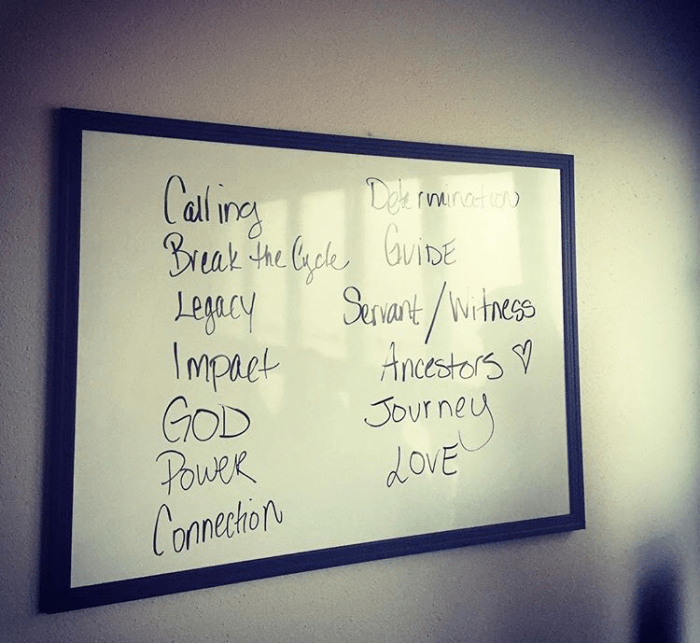 Calling
Break the Cycle
Legacy
Impact
GOD
Power
Connection
Determination
GUIDE
Servant/Witness
Ancestors ♡
Journey
LOVE